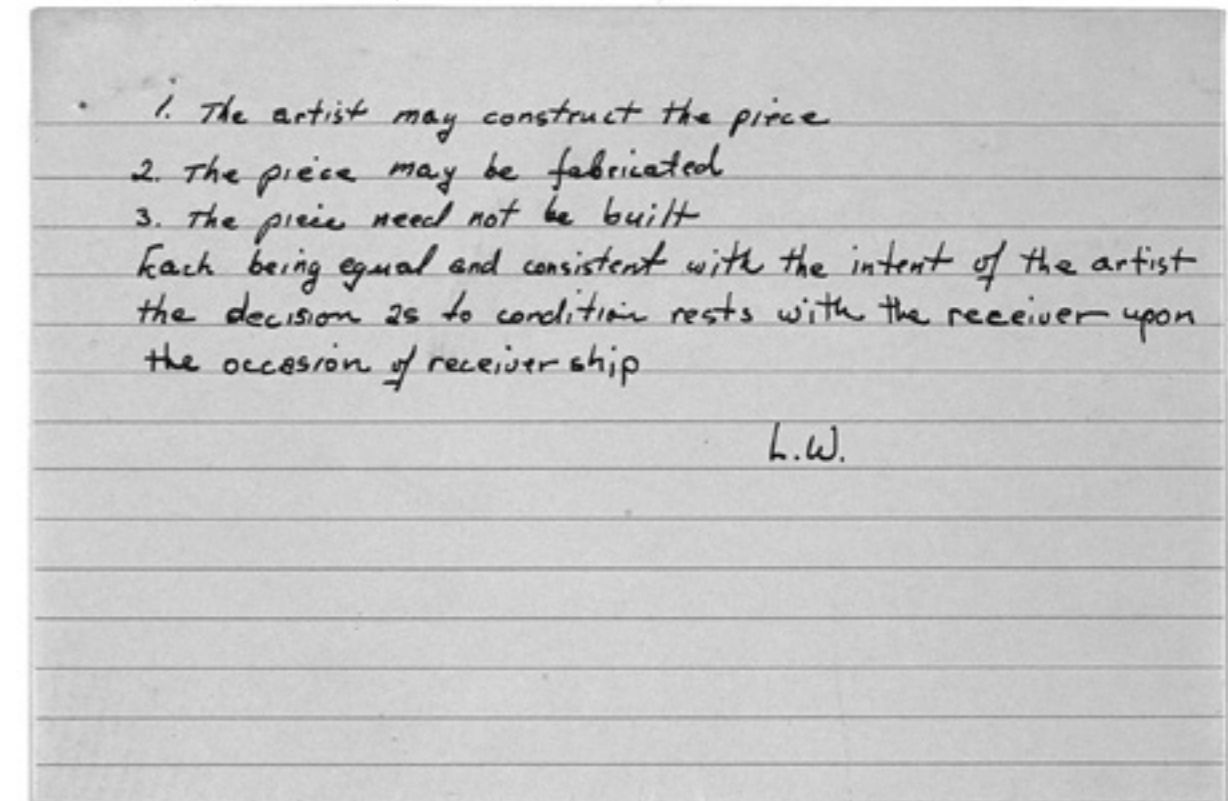 1. The artist may construct the piece
2. The piece may be fabricated
3. The piece need not be built
Each being equal and consistent with the intent of the artist
the decision as to condition rests with the receiver upon
the occasion of receivership
L.W.